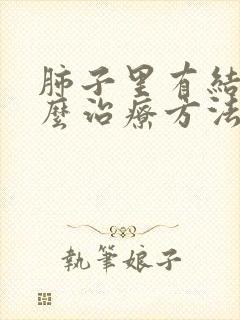 肺子里有結
麼治療方法
執筆娘子